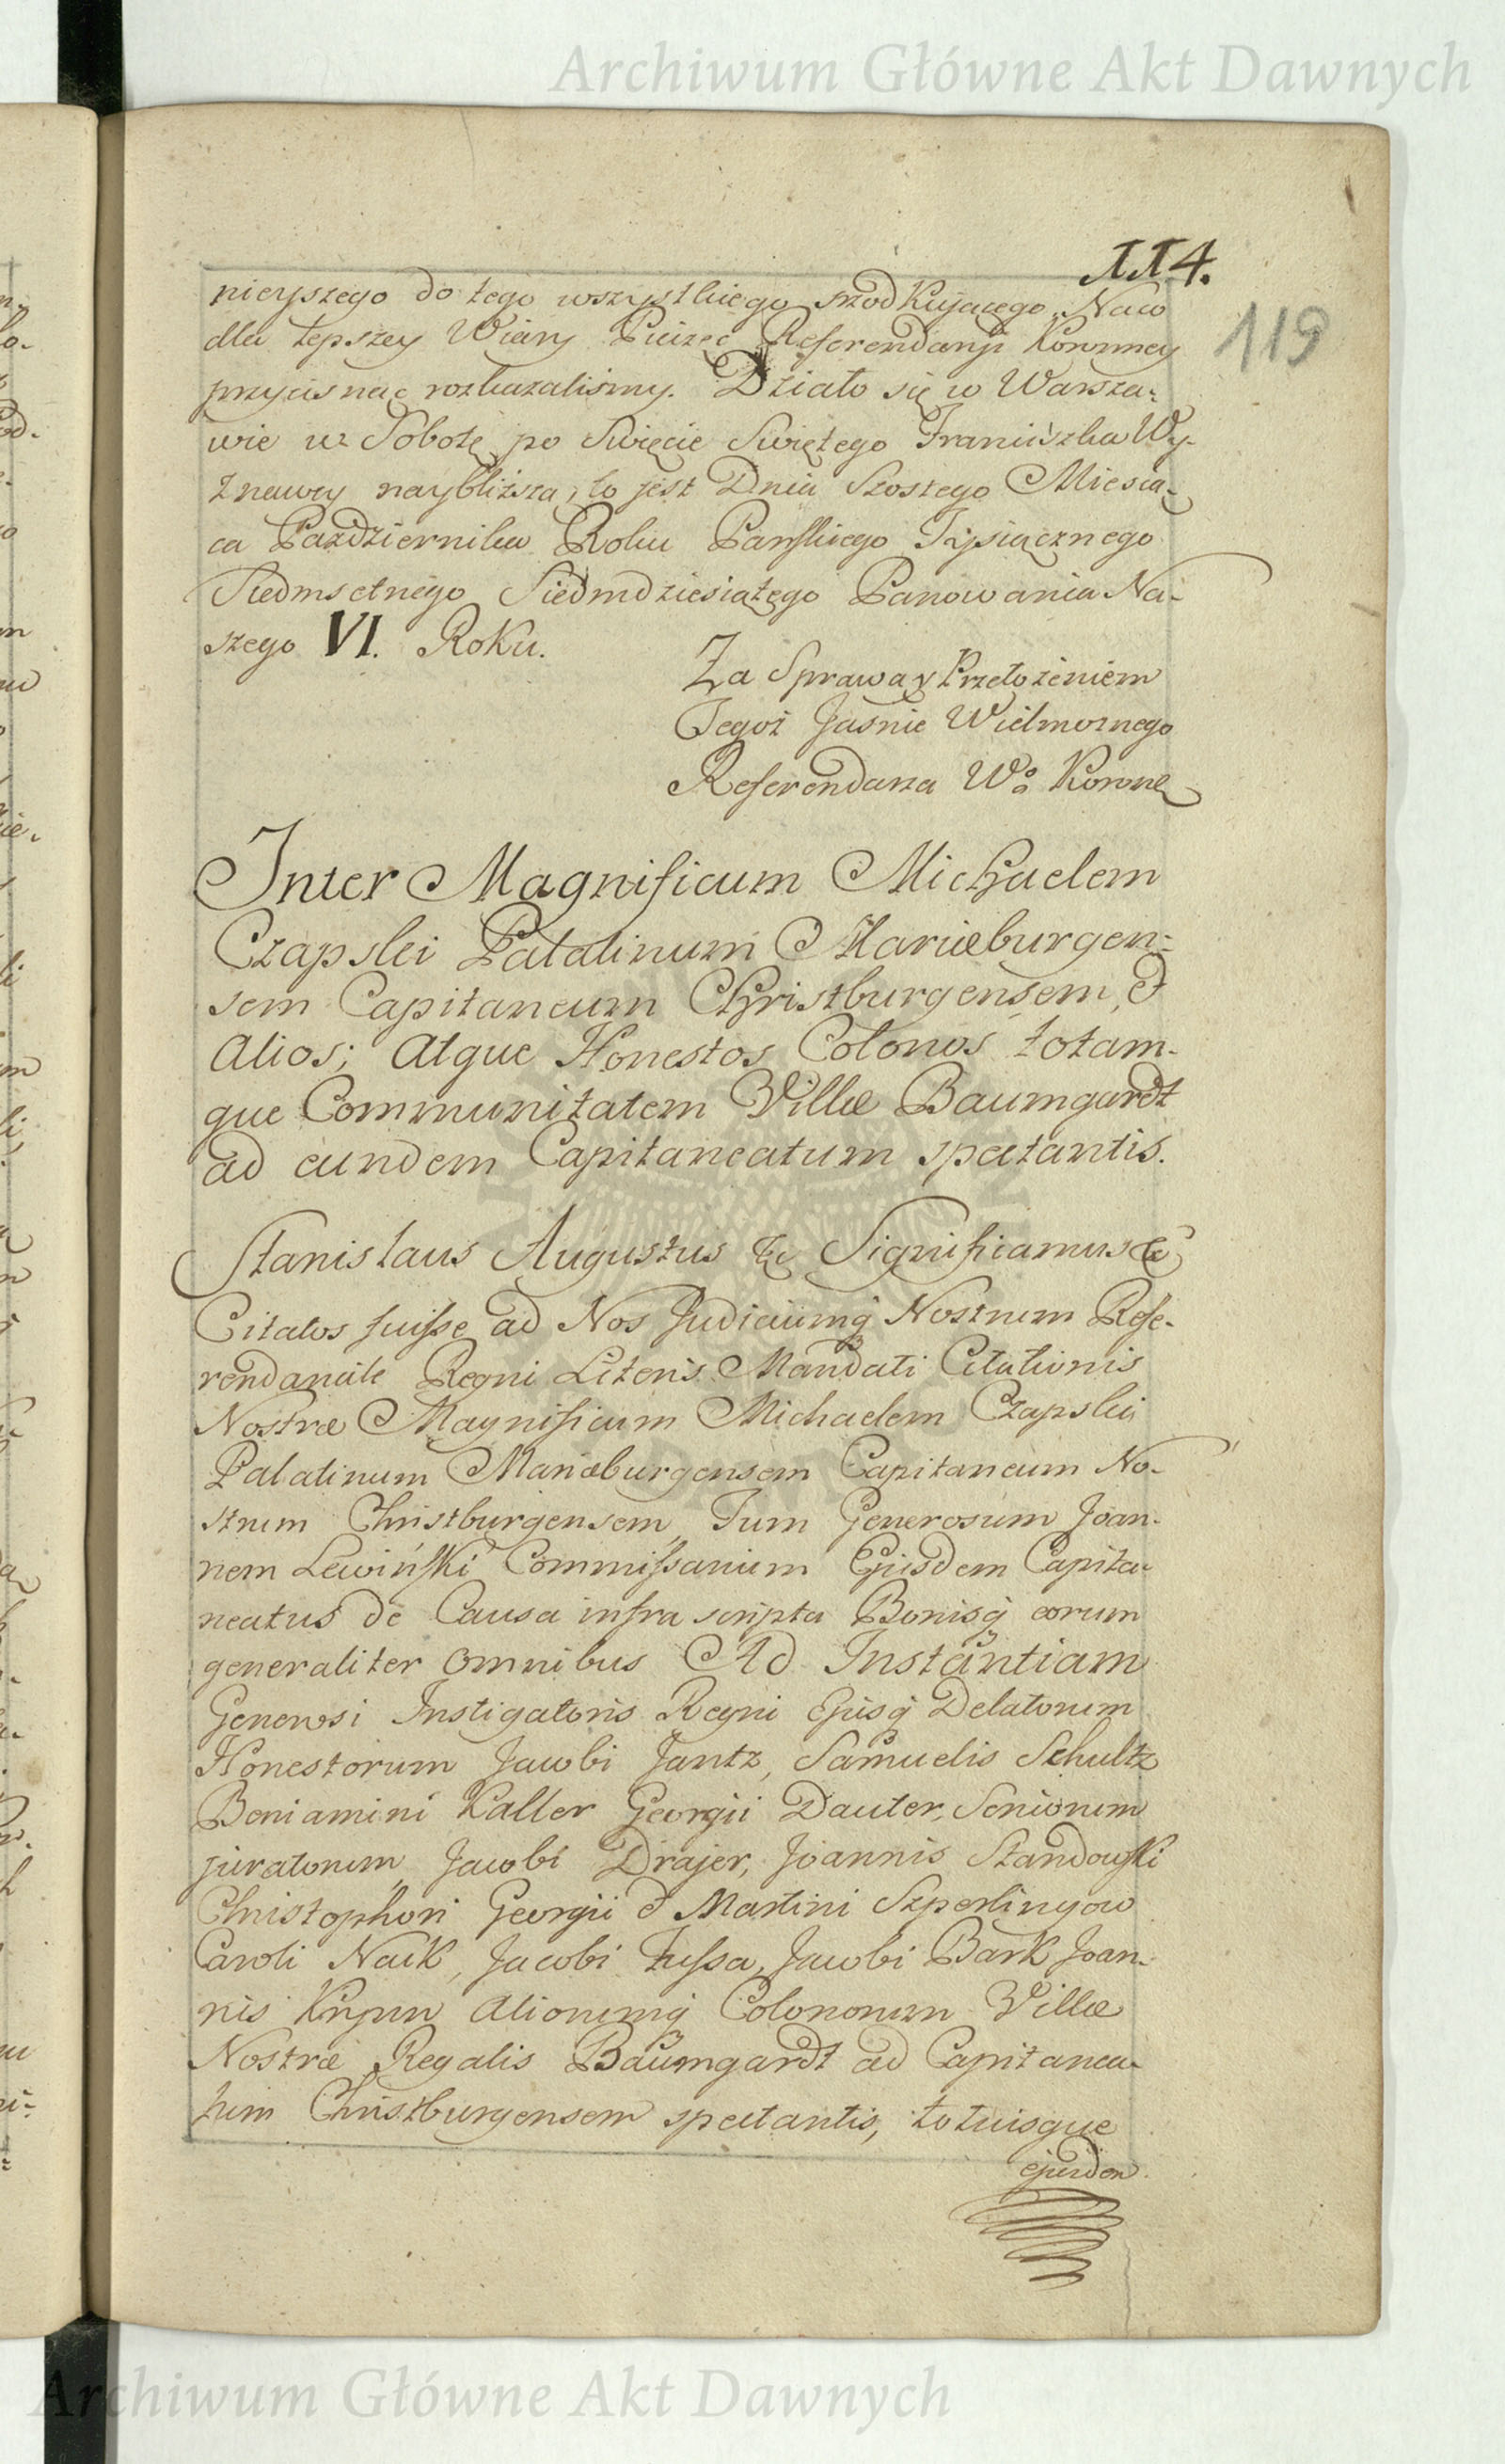 Archiwum Główne Akt Dawnych
114.
119
nieyszego do tego wszystkiego szodkującego. Na co
dla lepszey Wiary Pieczęć Referendaryi Koronney
przycisnąc rozkazalismy. Działo się w Warsza-
wie w Sobotę po Święcie Swiętego Franciszka Wy-
znawcy naybliższą, to jest Dnia Szostego Miesią-
ca Pazdziernika Roku Panskiego Tysiącznego
Siedmsetnego Siedmdziesiątego Panowania Na-
szego VI. Roku.
Za Sprawą y Przełożeniem
Tegoż Jasnie Wielmoznego
Referendarza Wo Koronne
Inter Magnificum Michaelem
Czapski Palatinum Mariæburgen-
sem Capitaneum Christburgensem, et
Alios; Atque Honestos Colonos totam-
que Communitatem Villæ Baumgardt
ad eundem Capitaneatum spectantis.
Stanislaus Augustus &c Significamus &c
Citatos fuisse ad Nos Judiciumq Nostrum Refe-
rendariale Regni Literis Mandati Citationis
Nostræ Magnificum Michaelem Czapski
Palatinum Mariæburgensem Capitaneum No-
strum Christburgensem, Tum Generosum Joan-
nem Lewiński Commissarium Ejusdem Capita-
neatus de Causa infra scripta Bonisq eorum
generaliter omnibus Ad Instantiam
Generosi Instigatoris Regni Ejusq Delatorum
Honestorum Jacobi Jantz, Samuelis Schultz
Beniamini Kaller Georgii Dauter, Seniorum
juratorum, Jacobi Drajer, Joannis Standowski
Christophori Georgii et Martini Szperlingow
Caroli Naik, Jacobi Fussa, Jacobi Bark Joan-
nis Krypun Aliorumq Colonorum Villæ
Nostræ Regalis Baumgardt ad Capitanea-
tum Christburgensem spectantis, totiusque
ejusdem
Archiwum Główne Akt Dawnych